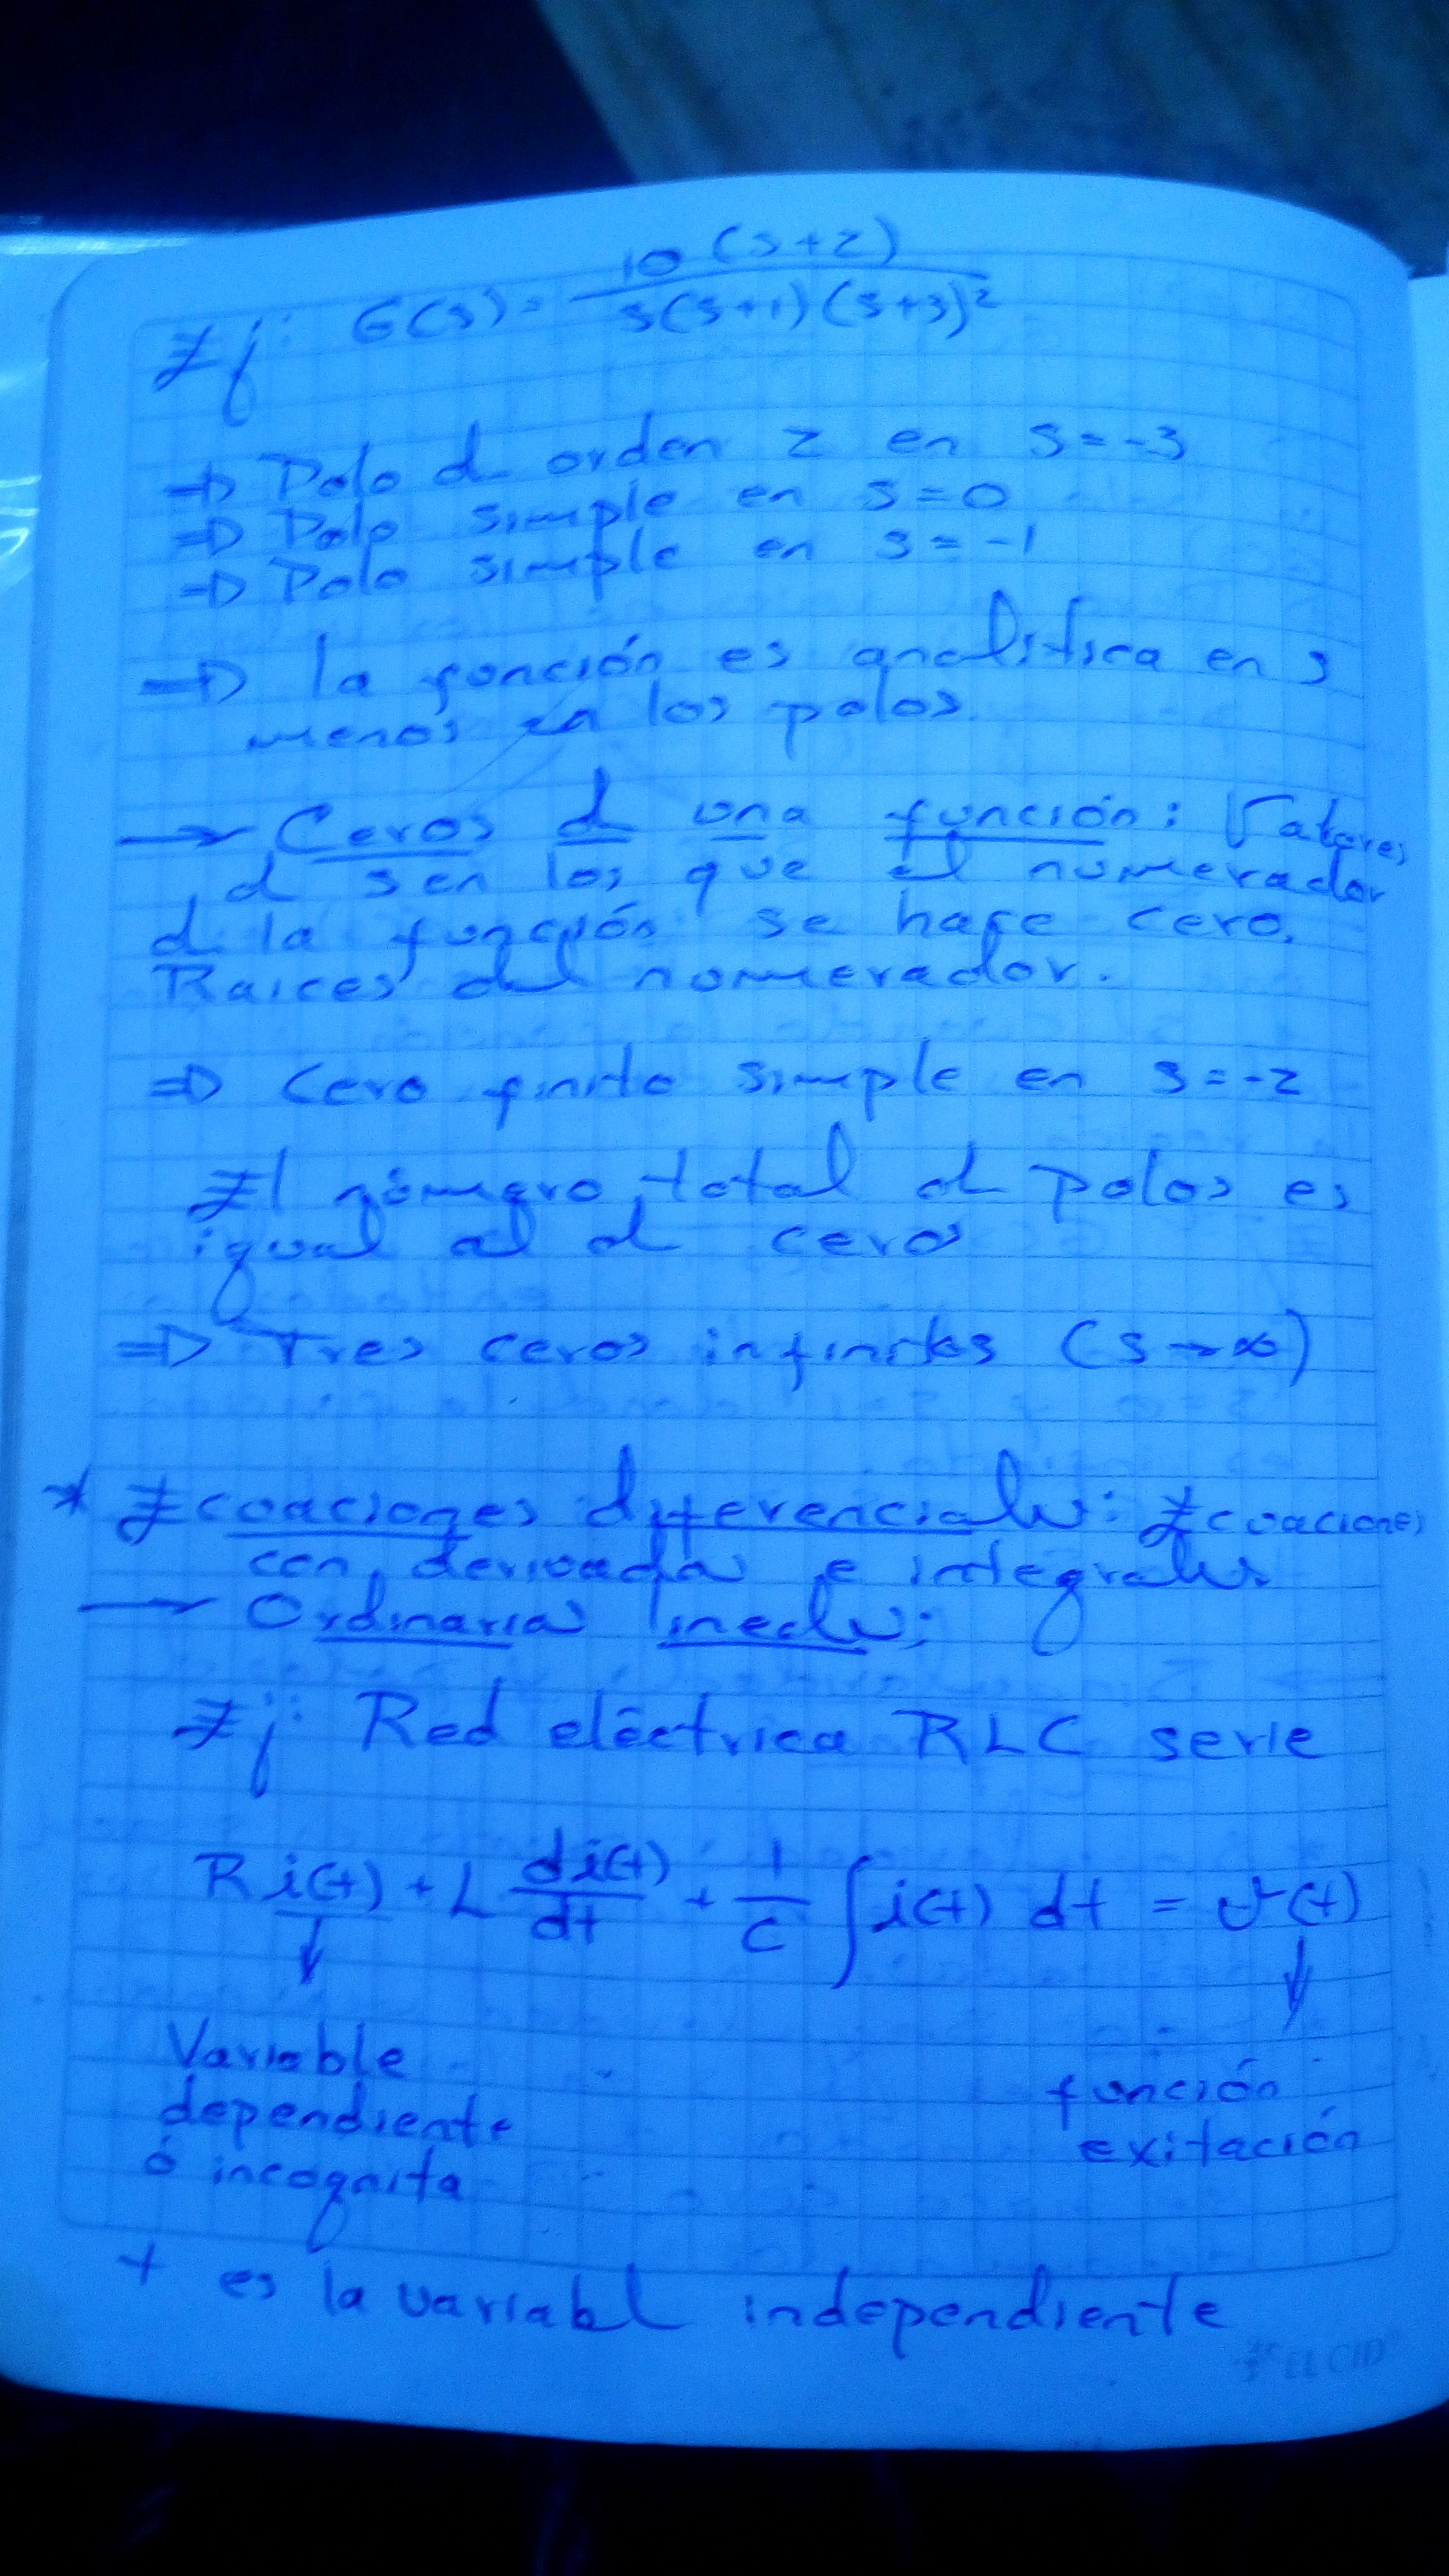 Ej: G(s) = 10(s+2) / s(s+1)(s+3)²
⇒ Polo d orden 2 en s=-3
⇒ Polo simple en s=0
⇒ Polo simple en s=-1
⇒ la función es analitica en s
menos en los polos
→ Ceros d una función: Valores
d s en los que el numerador
d la función se hace cero.
Raices del numerador.
⇒ Cero finito simple en s=-2
El número total d polos es
igual al d ceros
⇒ Tres ceros infinitos (s→∞)
* Ecuaciones diferenciales: Ecuaciones
con derivadas e integrales.
→ Ordinarias lineales:
Ej: Red eléctrica RLC serie
R i(t) + L di(t)/dt + 1/C ∫ i(t) dt = v(t)
Variable
dependiente
ó incognita
función
exitación
t es la variable independiente
EL CID